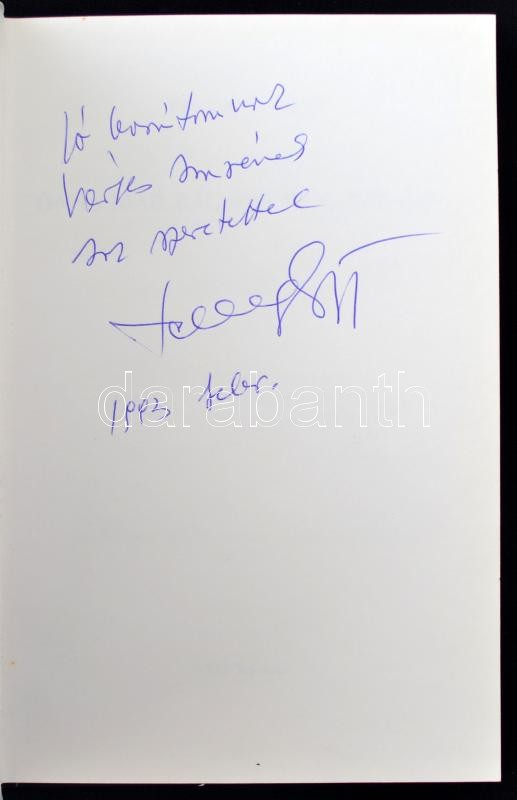 Jó barátomnak
Vértes Imrének
sok szeretettel
1993 febr.
darabanth